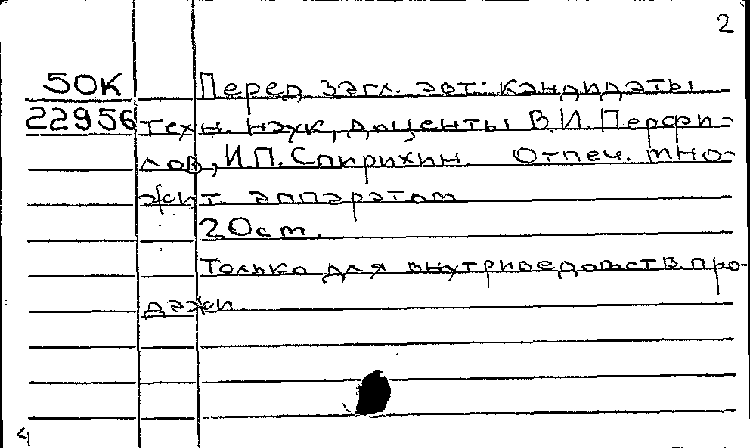 2
50К Перед загл. авт: кандидаты
22956 техн. наук, доценты В.И. Перфи-
лов, И.П. Спирихин. Отпеч. мно-
жит. аппаратом
20 см.
Только для внутриведомств. про-
дажи
4